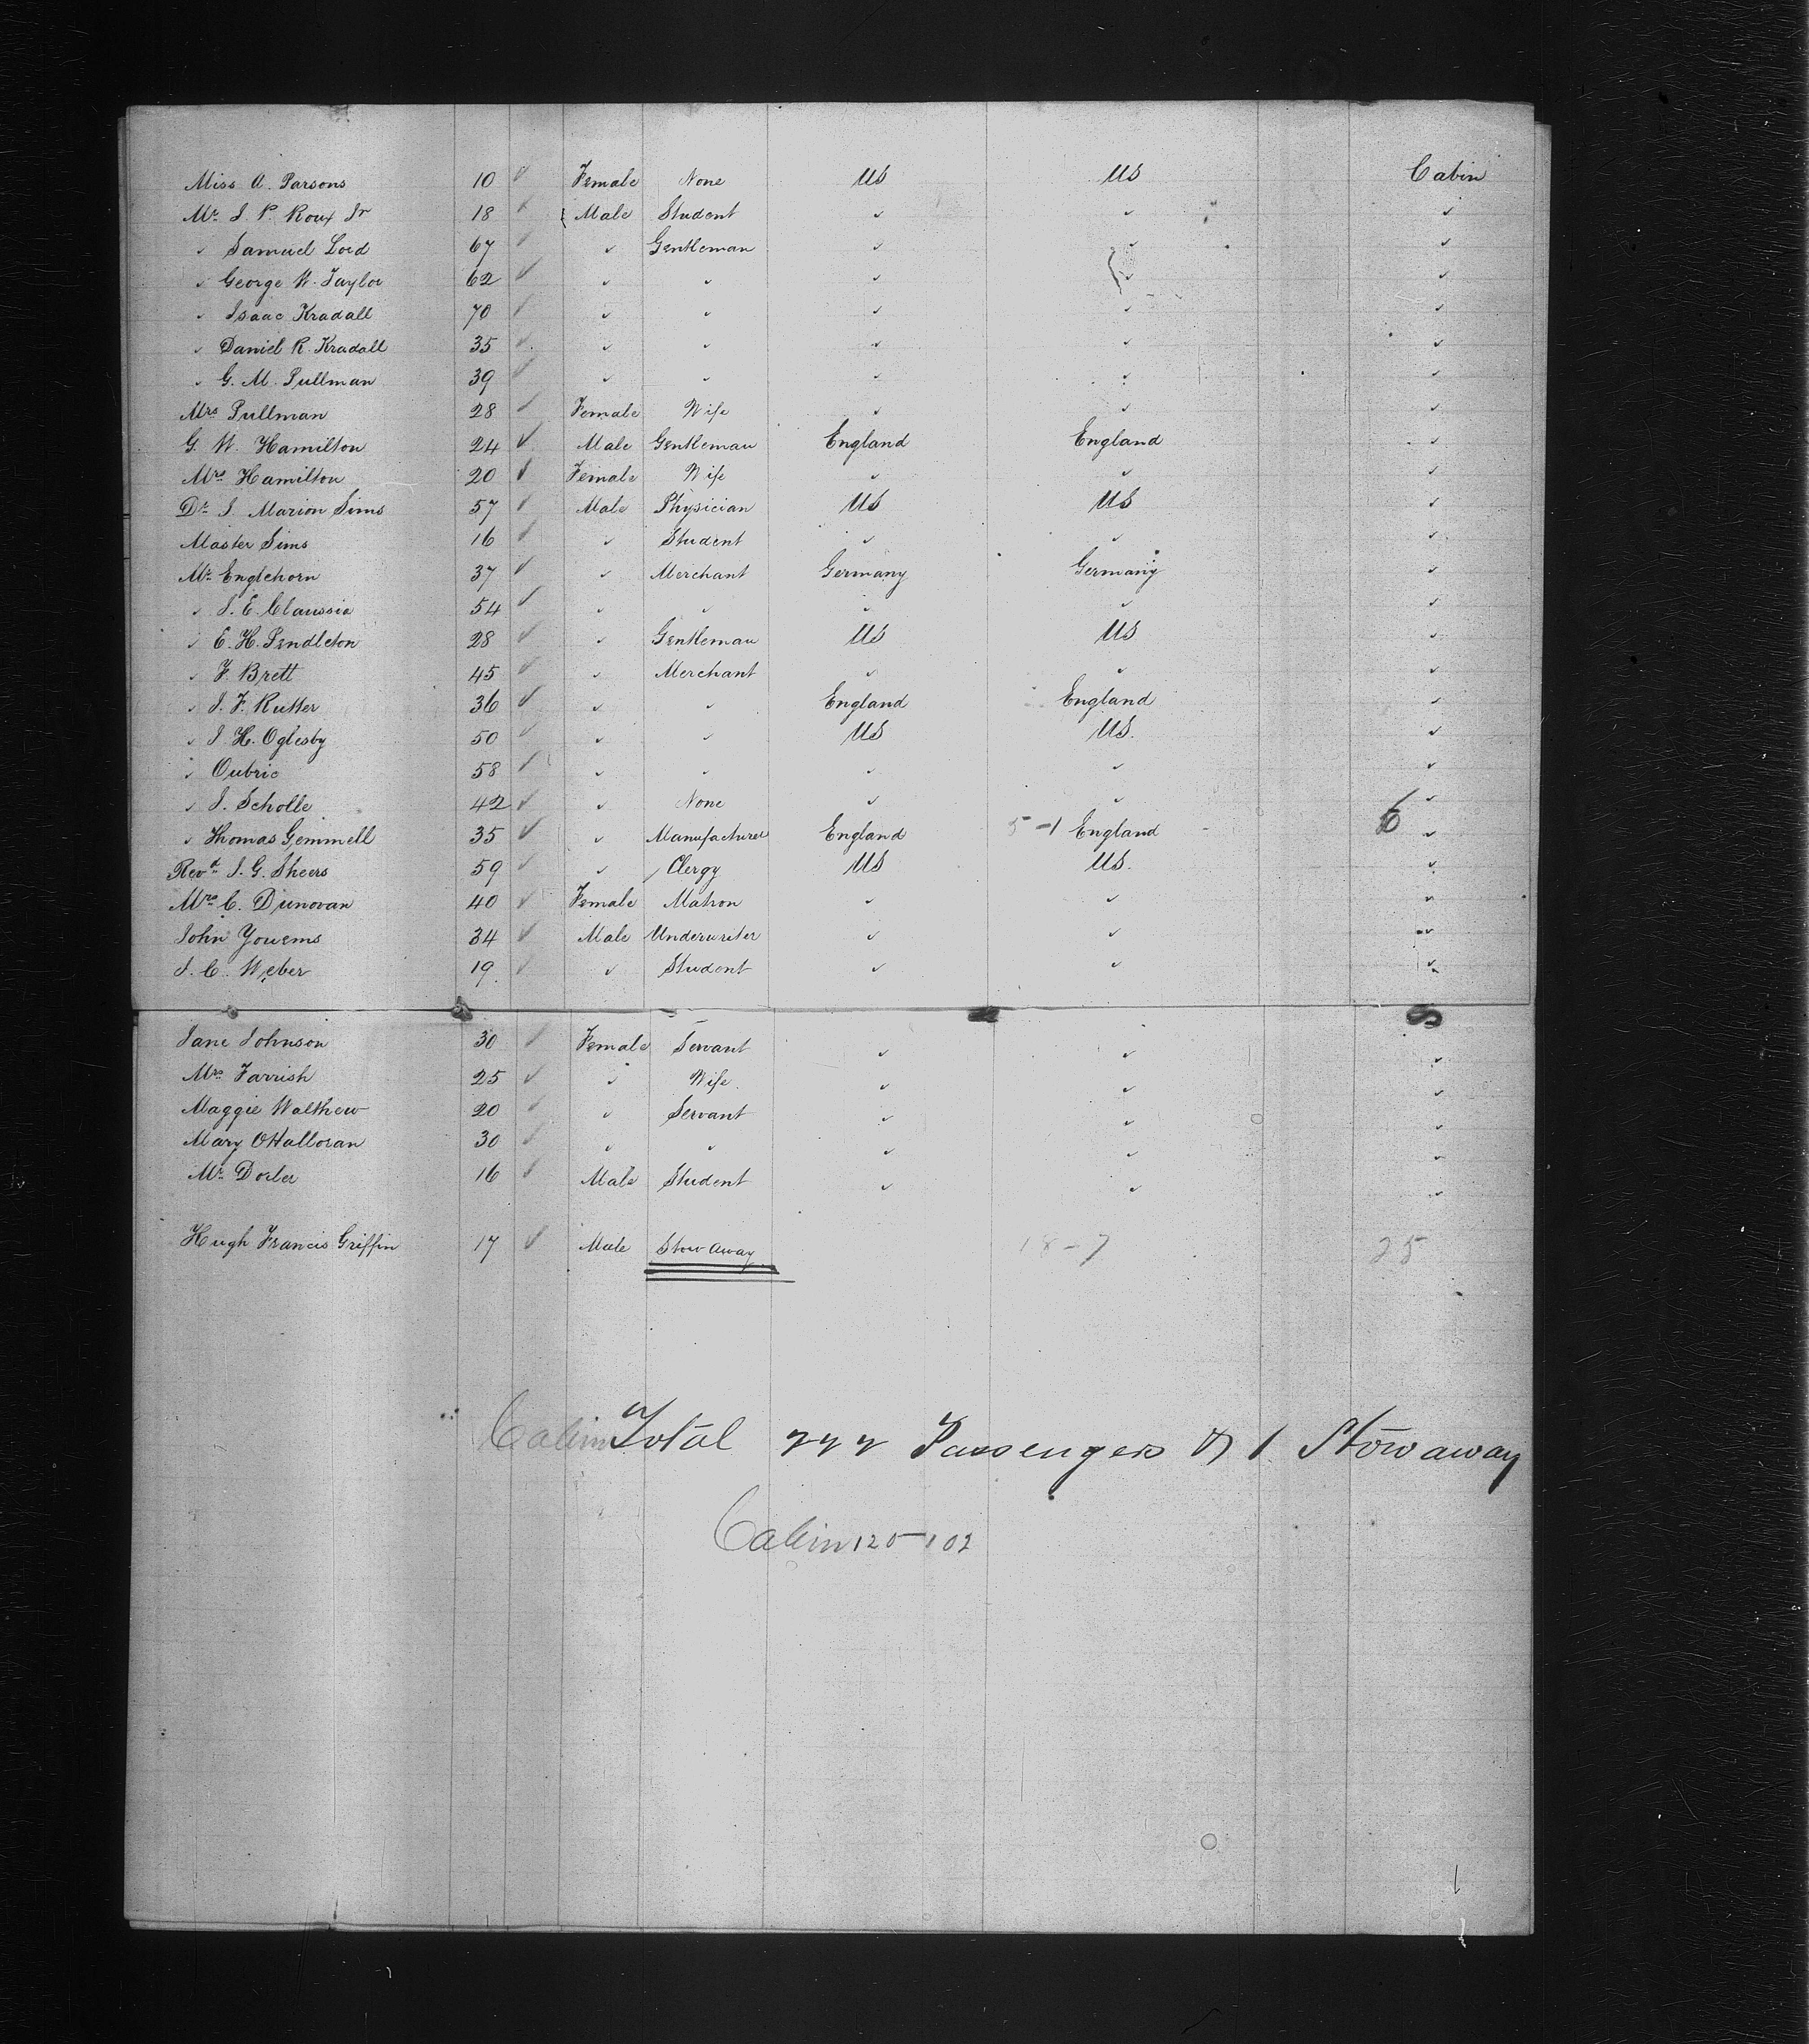 Miss A. Parsons 10 ✓ Female None US US Cabin
Mr J. P. Roux Jr 18 ✓ Male Student ✓ ✓ ✓
✓ Samuel Lord 67 ✓ ✓ Gentleman ✓ ✓ ✓
✓ George W. Taylor 62 ✓ ✓ ✓ ✓ ✓ ✓
✓ Isaac Kradall 70 ✓ ✓ ✓ ✓ ✓ ✓
✓ Daniel R. Kradall 35 ✓ ✓ ✓ ✓ ✓ ✓
✓ G. M. Pullman 39 ✓ ✓ ✓ ✓ ✓ ✓
Mrs Pullman 28 ✓ Female Wife ✓ ✓ ✓
G. W. Hamilton 24 ✓ Male Gentleman England England ✓
Mrs Hamilton 20 ✓ Female Wife ✓ ✓ ✓
Dr J. Marion Sims 57 ✓ Male Physician US US ✓
Master Sims 16 ✓ ✓ Student ✓ ✓ ✓
Mr Englehorn 37 ✓ ✓ Merchant Germany Germany ✓
✓ J. E. 54 ✓ ✓ ✓ ✓ ✓ ✓
✓ E. H. Pendleton 28 ✓ ✓ Gentleman US US ✓
✓ F. Brett 45 ✓ ✓ Merchant ✓ ✓ ✓
✓ J. F. Rutter 36 ✓ ✓ ✓ England England ✓
✓ J. H. Oglesby 50 ✓ ✓ ✓ US US. ✓
✓ Oubric 58 ✓ ✓ ✓ ✓ ✓ ✓
✓ J. Scholle 42 ✓ ✓ None ✓ ✓ ✓
✓ Thomas Gemmell 35 ✓ ✓ Manufacturer England 5-1 England 6 ✓
Revd J. G. Sheers 59 ✓ ✓ Clergy US US. ✓
Mrs C. Dunovan 40 ✓ Female Matron ✓ ✓ ✓
John Youems 34 ✓ Male Underwriter ✓ ✓ ✓
J. C. Weber 19. ✓ ✓ Student ✓ ✓ ✓
Jane Johnson 30 ✓ Female Servant ✓ ✓ ✓
Mrs Farrish 25 ✓ ✓ Wife ✓ ✓ ✓
Maggie Walthew 20 ✓ ✓ Servant ✓ ✓ ✓
Mary OHalloran 30 ✓ ✓ ✓ ✓ ✓ ✓
Mr 16 ✓ Male Student ✓ ✓ ✓
Hugh Francis Griffin 17 ✓ Male Stow Away 18-7 25
Cabin Total 222 Passengers & 1 Stowaway
Cabin 120-102